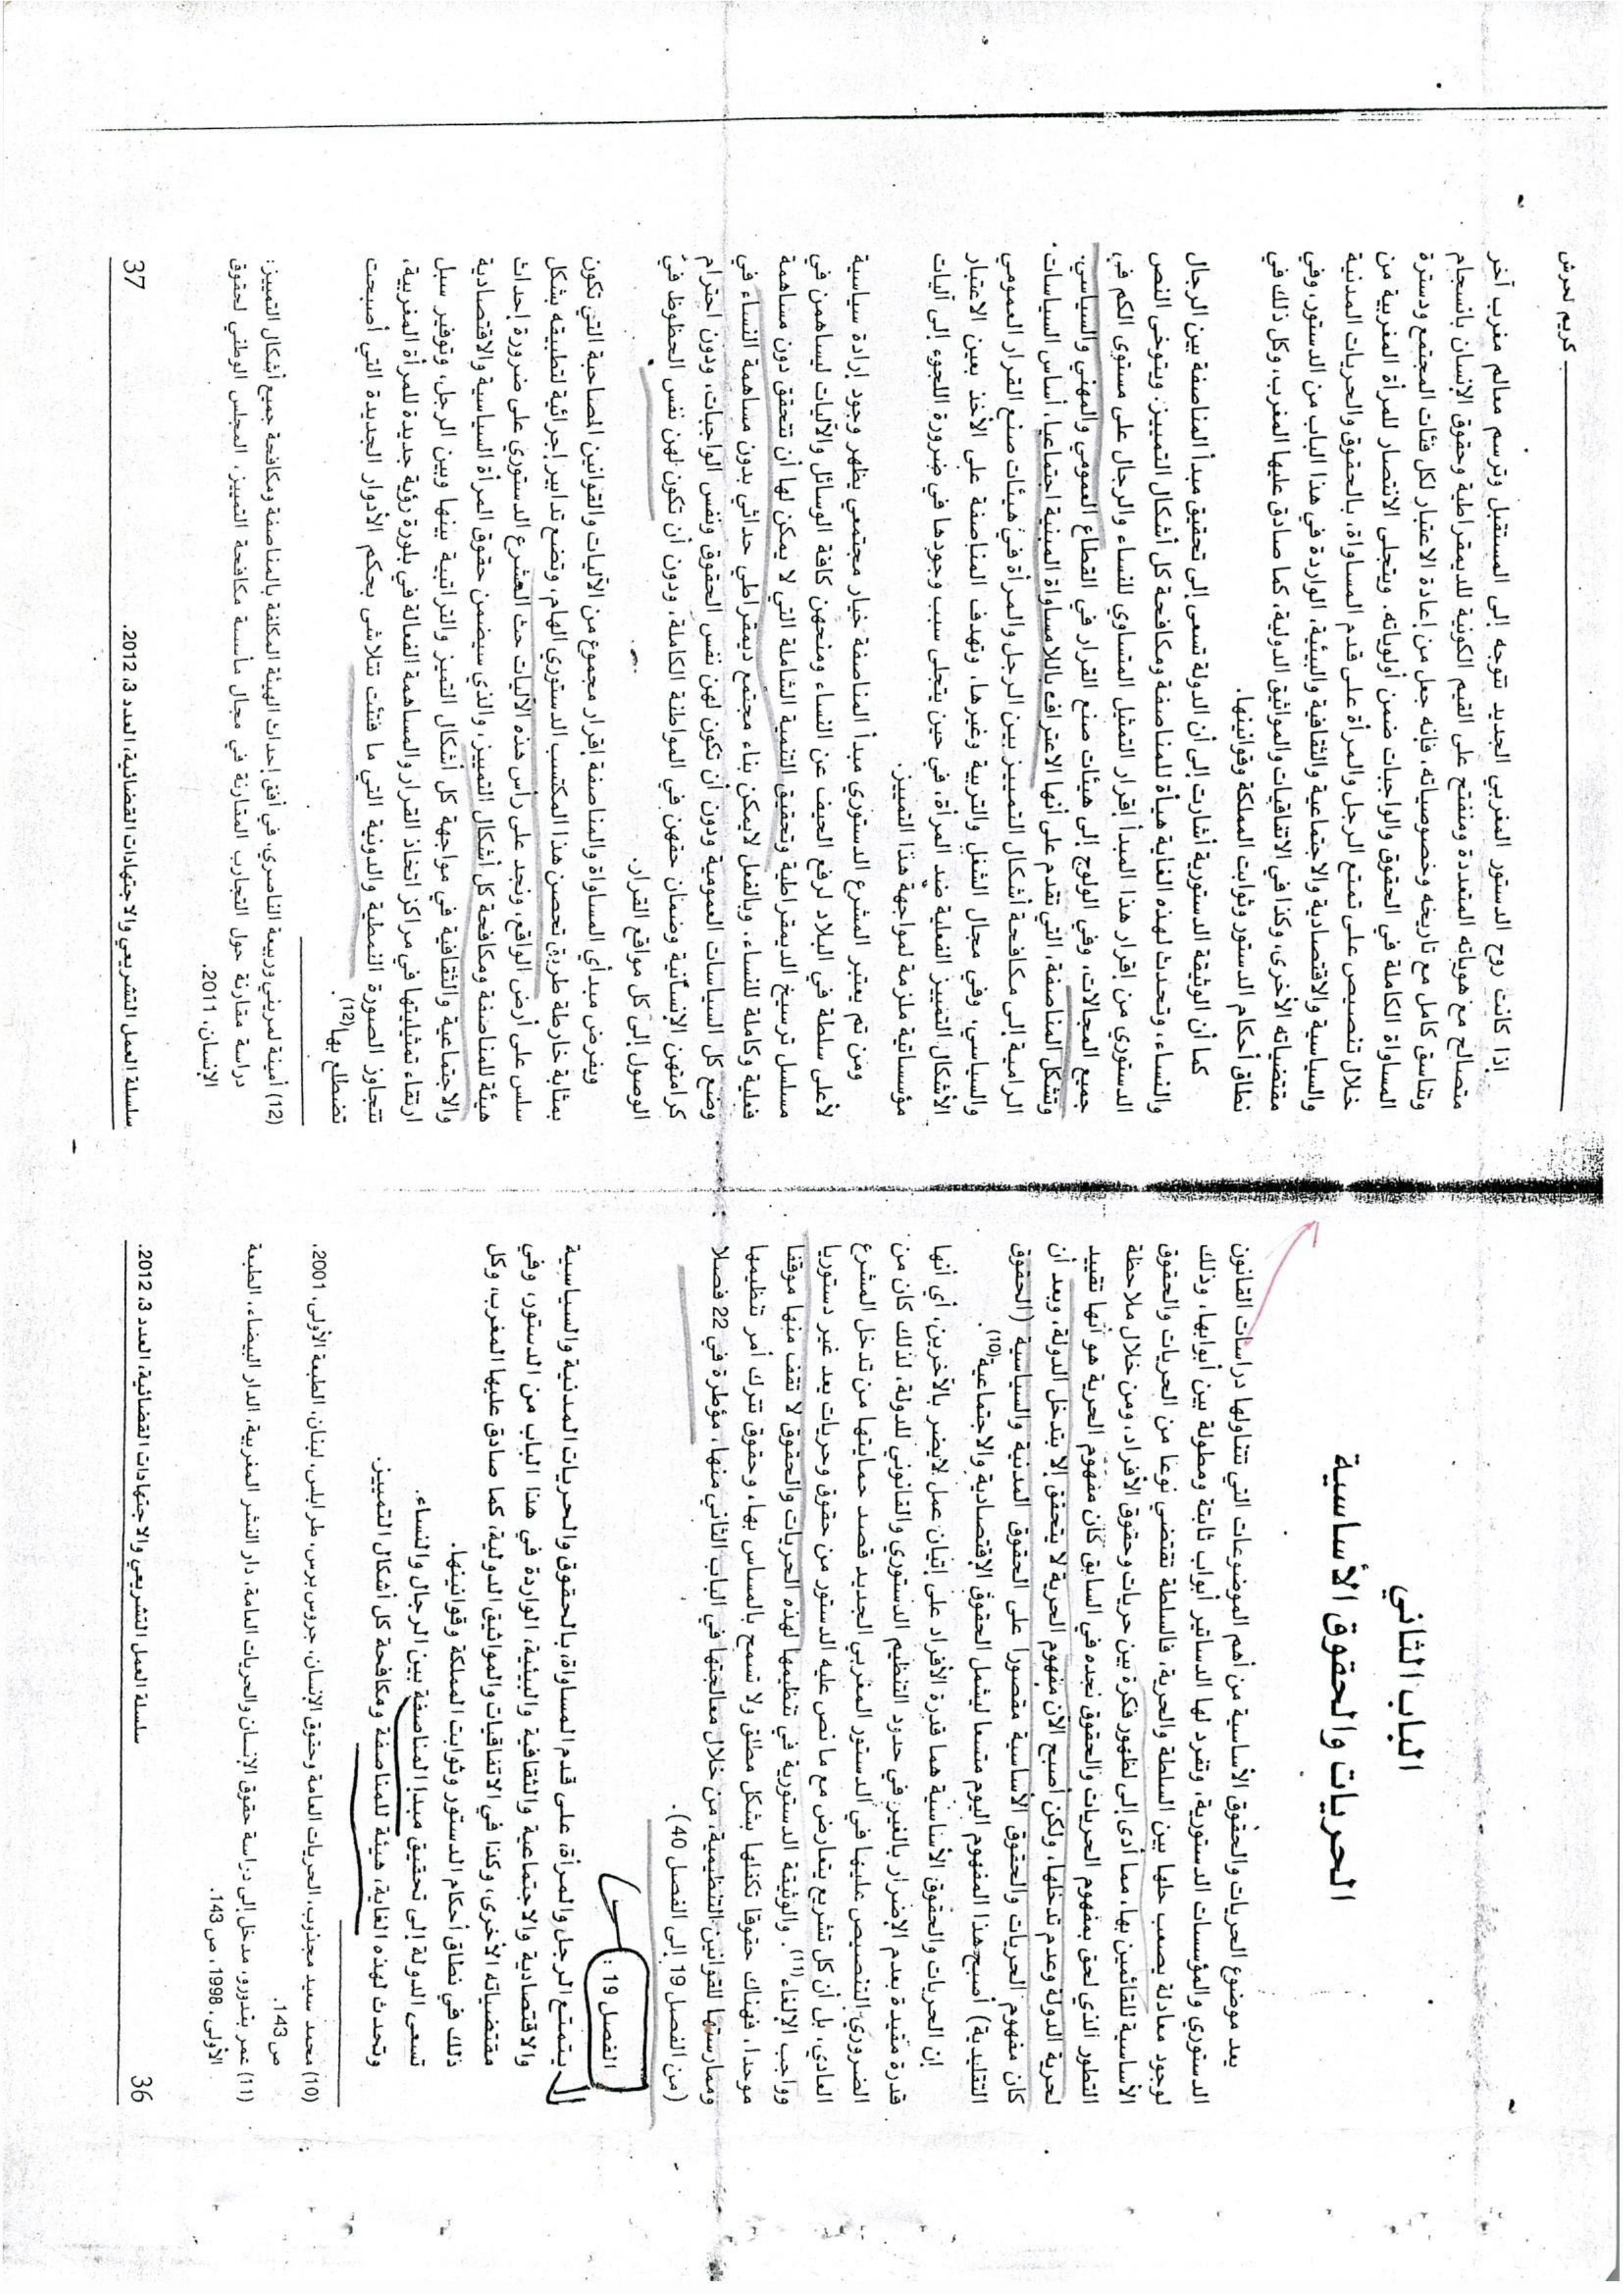 الباب الثاني
الحريات والحقوق الأساسية
يعد موضوع الحريات والحقوق الأساسية من أهم الموضوعات التي تتناولها دراسات القانون
الدستوري والمؤسسات الدستورية، وتفرد لها الدساتير أبواب ثابتة ومطولة بين أبوابها، وذلك
لوجود معادلة يصعب حلها بين السلطة والحرية، فالسلطة تقتضي نوعا من الحريات والحقوق
الأساسية للقائمين بها، مما أدى إلى لظهور فكرة بين حريات وحقوق الأفراد، ومن خلال ملاحظة
التطور الذي لحق بمفهوم الحريات والحقوق نجده في السابق كان مفهوم الحرية هو أنها تقييد
لحرية الدولة وعدم تدخلها، ولكن أصبح الآن مفهوم الحرية لا يتحقق إلا بتدخل الدولة، وبعد أن
كان مفهوم الحريات والحقوق الأساسية مقصورا على الحقوق المدنية والسياسية (الحقوق
التقليدية) أصبح هذا المفهوم اليوم متسعا ليشمل الحقوق الاقتصادية والاجتماعية(10).
إن الحريات والحقوق الأساسية هما قدرة الأفراد على إتيان عمل لايضر بالآخرين، أي أنها
قدرة مقيدة بعدم الإضرار بالغير في حدود التنظيم الدستوري والقانوني للدولة، لذلك كان من
الضروري التنصيص عليها في الدستور المغربي الجديد قصد حمايتها من تدخل المشرع
العادي، بل أن كل تشريع يتعارض مع ما نص عليه الدستور من حقوق وحريات يعد غير دستوريا
وواجب الإلغاء(11). والوثيقة الدستورية في تنظيمها لهذه الحريات والحقوق لا تقف منها موقفا
موحدا، فهناك حقوقا تكفلها بشكل مطلق ولا تسمح بالمساس بها، وحقوق تترك أمر تنظيمها
وممارستها للقوانين التنظيمية، من خلال معالجتها في الباب الثاني منها، مؤطرة في 22 فصلا
(من الفصل 19 إلى الفصل 40).
الفصل 19 :
يتمتع الرجل والمرأة، على قدم المساواة، بالحقوق والحريات المدنية والسياسية
والاقتصادية والاجتماعية والثقافية والبيئية، الواردة في هذا الباب من الدستور، وفي
مقتضياته الأخرى، وكذا في الاتفاقيات والمواثيق الدولية، كما صادق عليها المغرب، وكل
ذلك في نطاق أحكام الدستور وثوابت المملكة وقوانينها.
تسعى الدولة إلى تحقيق مبدإ المناصفة بين الرجال والنساء.
وتحدث لهذه الغاية، هيئة للمناصفة ومكافحة كل أشكال التمييز.
(10) محمد سعيد مجذوب، الحريات العامة وحقوق الإنسان، جروس برس، طرابلس، لبنان، الطبعة الأولى، 2001،
ص 143.
(11) عمر بندورو، مدخل إلى دراسة حقوق الإنسان والحريات العامة، دار النشر المغربية، الدار البيضاء، الطبعة
الأولى، 1998، ص 143.
36 سلسلة العمل التشريعي والاجتهادات القضائية، العدد 3، 2012.
كريم لحرش
إذا كانت روح الدستور المغربي الجديد تتوجه إلى المستقبل وترسم معالم مغرب آخر
متصالح مع هوياته المتعددة ومنفتح على القيم الكونية للديمقراطية وحقوق الإنسان بانسجام
وتناسق كامل مع تاريخه وخصوصياته، فإنه جعل من إعادة الاعتبار لكل فئات المجتمع ودسترة
المساواة الكاملة في الحقوق والواجبات ضمن أولوياته. ويتجلى الانتصار للمرأة المغربية من
خلال تنصيص على تمتع الرجل والمرأة على قدم المساواة، بالحقوق والحريات المدنية
والسياسية والاقتصادية والاجتماعية والثقافية والبيئية، الواردة في هذا الباب من الدستور، وفي
مقتضياته الأخرى، وكذا في الاتفاقيات والمواثيق الدولية، كما صادق عليها المغرب، وكل ذلك في
نطاق أحكام الدستور وثوابت المملكة وقوانينها.
كما أن الوثيقة الدستورية أشارت إلى أن الدولة تسعى إلى تحقيق مبدأ المناصفة بين الرجال
والنساء، وتحدث لهذه الغاية هيأة للمناصفة ومكافحة كل أشكال التمييز. ويتوخى النص
الدستوري من إقرار هذا المبدأ إقرار التمثيل المتساوي للنساء والرجال على مستوى الكم في
جميع المجالات، وفي الولوج إلى هيئات صنع القرار في القطاع العمومي والمهني والسياسي.
وتشكل المناصفة، التي تقدم على أنها الاعتراف باللامساواة المبنية اجتماعيا، أساس السياسات
الرامية إلى مكافحة أشكال التمييز بين الرجل والمرأة في هيئات صنع القرار العمومي
والسياسي، وفي مجال الشغل والتربية وغيرها. وتهدف المناصفة على الأخذ بعين الاعتبار
الأشكال التمييز الفعلية ضد المرأة، في حين يتجلى سبب وجودها في ضرورة اللجوء إلى آليات
مؤسساتية ملزمة لمواجهة هذا التمييز.
ومن تم يعتبر المشرع الدستوري مبدأ المناصفة خيار مجتمعي يظهر وجود إرادة سياسية
لأعلى سلطة في البلاد لرفع الحيف عن النساء ومنحهن كافة الوسائل والآليات ليساهمن في
مسلسل ترسيخ الديمقراطية وتحقيق التنمية الشاملة التي لا يمكن لها أن تتحقق دون مساهمة
فعلية وكاملة للنساء. وبالفعل لايمكن بناء مجتمع ديمقراطي حداثي بدون مساهمة النساء في
وضع كل السياسات العمومية ودون أن تكون لهن نفس الحقوق ونفس الواجبات، ودون احترام
كرامتهن الإنسانية وضمان حقهن في المواطنة الكاملة، ودون أن تكون لهن نفس الحظوظ في
الوصول إلى كل مواقع القرار.
ويفرض مبدأي المساواة والمناصفة إقرار مجموع من الآليات والقوانين المصاحبة التي تكون
بمثابة خارطة طريق تحصن هذا المكتسب الدستوري الهام، وتضع تدابير إجرائية لتطبيقه بشكل
سلس على أرض الواقع، ونجد على رأس هذه الآليات حث المشرع الدستوري على ضرورة إحداث
هيئة للمناصفة ومكافحة كل أشكال التمييز، والذي سيضمن حقوق المرأة السياسية والاقتصادية
والاجتماعية والثقافية في مواجهة كل أشكال التميز والتراتبية بينها وبين الرجل، وتوفير سبل
ارتقاء تمثيليتها في مراكز اتخاذ القرار والمساهمة الفعالة في بلورة رؤية جديدة للمرأة المغربية،
تتجاوز الصورة النمطية والدونية التي ما فتئت تتلاشى بحكم الأدوار الجديدة التي أصبحت
تضطلع بها(12).
(12) أمينة لمريني وربيعة الناصري، في أفق إحداث الهيئة المكلفة بالمناصفة ومكافحة جميع أشكال التمييز:
دراسة مقارنة حول التجارب المقارنة في مجال مأسسة مكافحة التمييز، المجلس الوطني لحقوق
الإنسان، 2011.
سلسلة العمل التشريعي والاجتهادات القضائية، العدد 3، 2012. 37